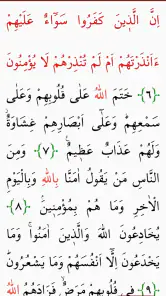 اِنَّ الَّذ۪ينَ كَفَرُوا سَوَٓاءٌ عَلَيْهِمْ
ءَاَنْذَرْتَهُمْ اَمْ لَمْ تُنْذِرْهُمْ لَا يُؤْمِنُونَ
﴿٦﴾ خَتَمَ اللهُ عَلٰى قُلُوبِهِمْ وَعَلٰى
سَمْعِهِمْ وَعَلٰٓى اَبْصَارِهِمْ غِشَاوَةٌ
وَلَهُمْ عَذَابٌ عَظ۪يمٌ ﴿٧﴾ وَمِنَ
النَّاسِ مَنْ يَقُولُ اٰمَنَّا بِاللهِ وَبِالْيَوْمِ
الْاٰخِرِ وَمَا هُمْ بِمُؤْمِن۪ينَ ﴿٨﴾
يُخَادِعُونَ اللهَ وَالَّذ۪ينَ اٰمَنُوا وَمَا
يَخْدَعُونَ اِلَّٓا اَنْفُسَهُمْ وَمَا يَشْعُرُونَ
﴿٩﴾ ف۪ي قُلُوبِهِمْ مَرَضٌ فَزَادَهُمُ اللهُ